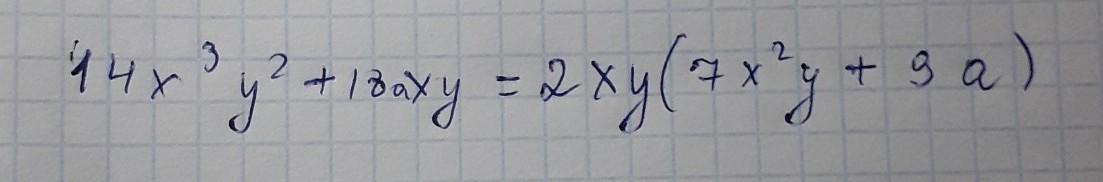 14x³y² + 18axy = 2xy(7x²y + 9a)